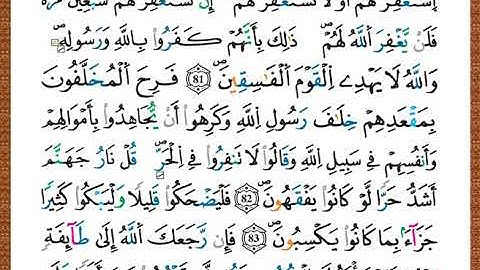 اِسْتَغْفِرْ لَهُمْ أَوْ لَا تَسْتَغْفِرْ لَهُمْ إِن تَسْتَغْفِرْ لَهُمْ سَبْعِينَ مَرَّةً
فَلَنْ يَّغْفِرَ اَللَّهُ لَهُمْ ذَٰلِكَ بِأَنَّهُمْ كَفَرُوا۟ بِاللَّهِ وَرَسُولِهِ
وَاللَّهُ لَا يَهْدِے اِلْقَوْمَ اَلْفَٰسِقِينَ 81 فَرِحَ اَلْمُخَلَّفُونَ
بِمَقْعَدِهِمْ خِلَٰفَ رَسُولِ اِللَّهِ وَكَرِهُوا۟ أَنْ يُّجَٰهِدُوا۟ بِأَمْوَٰلِهِمْ
وَأَنفُسِهِمْ فِي سَبِيلِ اِللَّهِ وَقَالُوا۟ لَا تَنفِرُوا۟ فِي اِلْحَرِّ قُلْ نَارُ جَهَنَّمَ
أَشَدُّ حَرًّا لَّوْ كَانُوا۟ يَفْقَهُونَ 82 فَلْيَضْحَكُوا۟ قَلِيلًا وَلْيَبْكُوا۟ كَثِيرًا
جَزَآءً بِمَا كَانُوا۟ يَكْسِبُونَ 83 فَإِن رَّجَعَكَ اَللَّهُ إِلَىٰ طَآئِفَةٍ